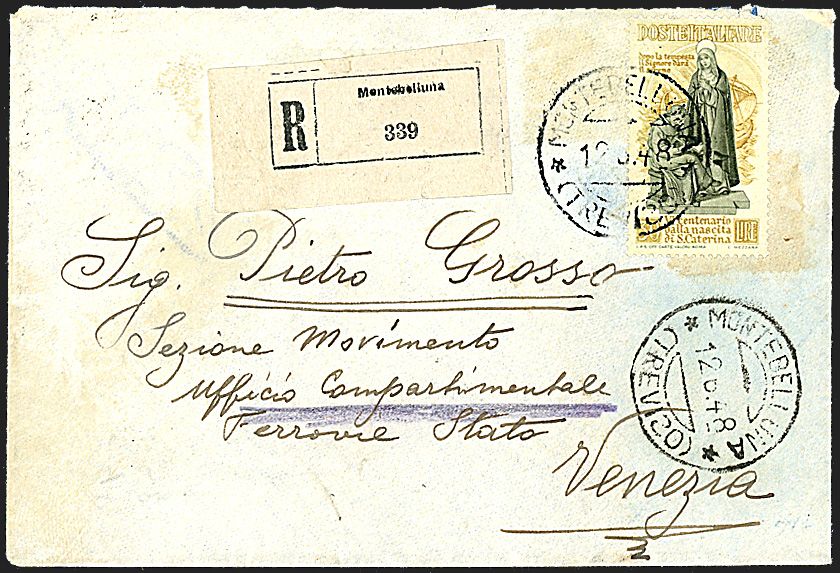 POSTE ITALIANE
dopo la tempesta
il Signore darà
Montebelluna
R
339
MONTEBELLUNA
12.6.48
(TREVISO)
centenario
della nascita
di S. Caterina
LIRE
I.P.S. OFF. CARTE-VALORI-ROMA
E. MEZZANA
Sig. Pietro Grosso
Sezione Movimento
Ufficio Compartimentale
Ferrovie Stato
Venezia
MONTEBELLUNA
12.6.48
(TREVISO)